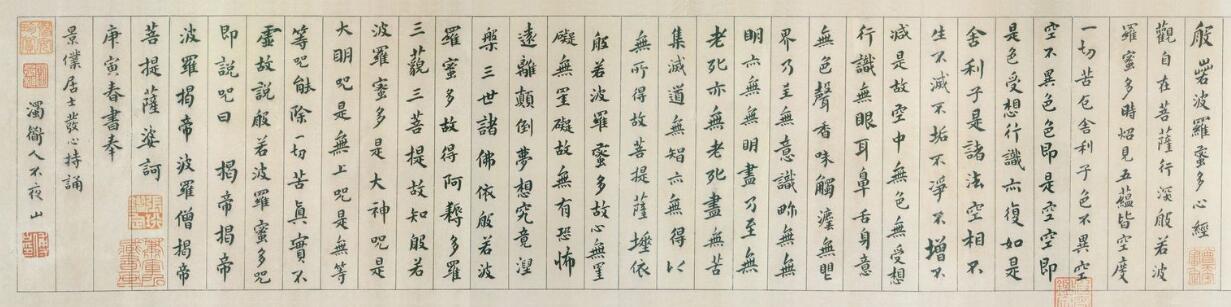 般若波羅蜜多心經
觀自在菩薩行深般若波
羅蜜多時照見五蘊皆空度
一切苦厄舍利子色不異空
空不異色色即是空空即
是色受想行識亦復如是
舍利子是諸法空相不
生不滅不垢不淨不增不
減是故空中無色無受想
行識無眼耳鼻舌身意
無色聲香味觸灋無眼
界乃至無意識界無無
明亦無無明盡乃至無
老死亦無老死盡無苦
集滅道無智亦無得以
無所得故菩提薩埵依
般若波羅蜜多故心無罣
礙無罣礙故無有恐怖
遠離顛倒夢想究竟涅
槃三世諸佛依般若波
羅蜜多故得阿耨多羅
三藐三菩提故知般若
波羅蜜多是大神咒是
大明咒是無上咒是無等
等咒能除一切苦真實不
虛故說般若波羅蜜多咒
即說咒曰 揭帝揭帝
波羅揭帝波羅僧揭帝
菩提薩婆訶
庚寅春書奉
景僕居士發心持誦
人不夜山